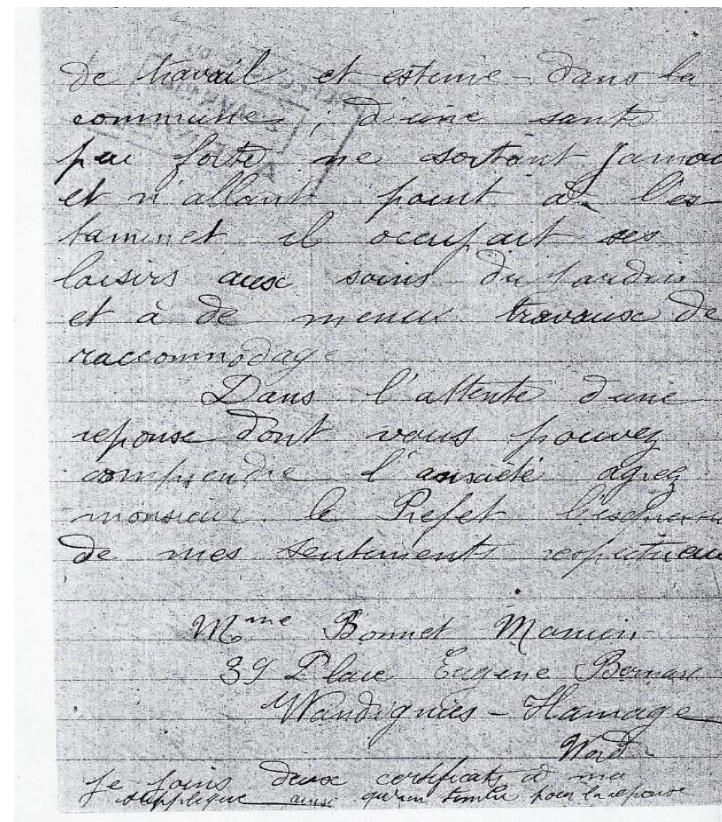 de travail et estimé dans la
commune ; d'une santé
peu forte ne sortant jamais
et n'allant point à l'es-
taminet il occupait ses
loisirs aux soins du jardin
et à de menus travaux de
raccommodage
Dans l'attente d'une
reponse dont vous pouvez
comprendre l'anxiété agrez
monsieur le Prefet l'expression
de mes sentiments respectueux
Mme Bonnet
39 Place Eugène
Wandignies-Hamage
Nord
je joins deux certificats à ma
supplique ainsi qu'un timbre pour la reponse